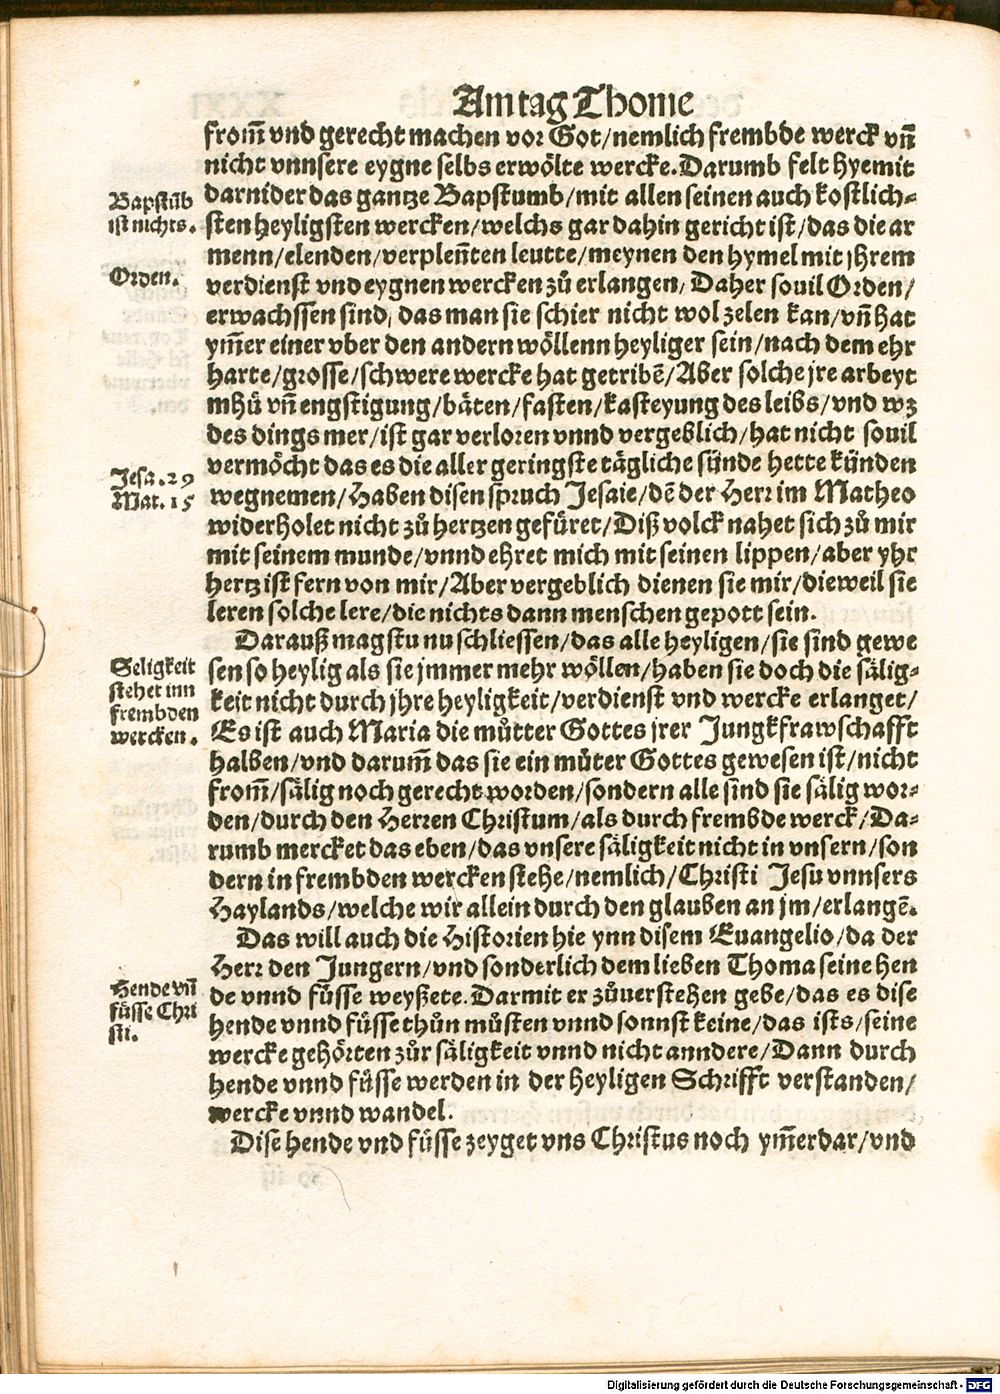 Am tag Thome
from̃ vnd gerecht machen vor Got/nemlich frembde werck vñ
nicht vnnsere eygne selbs erwölte wercke. Darumb felt hyemit
darnider das gantze Bapstumb/mit allen seinen auch kostlich⸗
sten heyligsten wercken/welchs gar dahin gericht ist/das die ar
menn/elenden/verpleñten leutte/meynen den hymel mit jhrem
verdienst vnd eygnen wercken zů erlangen/Daher souil Orden/
erwachssen sind, das man sie schier nicht wol zelen kan/vñ hat
ym̃er einer vber den andern wöllenn heyliger sein/nach dem ehr
harte/grosse/schwere wercke hat getribẽ/Aber solche jre arbeyt
mhü vñ engstigung/bäten/fasten/kasteyung des leibs/vnd wz
des dings mer/ist gar verloren vnnd vergeblich/hat nicht souil
vermöcht das es die aller geringste tägliche sünde hette künden
wegnemen/Haben disen spruch Jesaie/dẽ der Herr im Matheo
widerholet nicht zů hertzen gefüret/Diß volck nahet sich zů mir
mit seinem munde/vnnd ehret mich mit seinen lippen/aber yhr
hertz ist fern von mir/Aber vergeblich dienen sie mir/dieweil sie
leren solche lere/die nichts dann menschen gepott sein.
Darauß magstu nu schliessen/das alle heyligen/sie sind gewe
sen so heylig als sie jmmer mehr wöllen/haben sie doch die sälig⸗
keit nicht durch jhre heyligkeit/verdienst vnd wercke erlanget/
Es ist auch Maria die můtter Gottes jrer Jungkfrawschafft
halben/vnd darum̃ das sie ein můter Gottes gewesen ist/nicht
from̃/sälig noch gerecht worden/sondern alle sind sie sälig wor⸗
den/durch den Herren Christum/als durch frembde werck/Da⸗
rumb mercket das eben/das vnsere säligkeit nicht in vnsern/son
dern in frembden wercken stehe/nemlich/Christi Jesu vnnsers
Haylands/welche wir allein durch den glauben an jm/erlangẽ.
Das will auch die Historien hie ynn disem Euangelio/da der
Herr den Jungern/vnd sonderlich dem lieben Thoma seine hen
de vnnd füsse weyßete. Darmit er zůuerstehen gebe/das es dise
hende vnnd füsse thůn můsten vnnd sonnst keine/das ists/seine
wercke gehörten zůr säligkeit vnnd nicht anndere/Dann durch
hende vnnd füsse werden in der heyligen Schrifft verstanden/
wercke vnnd wandel.
Dise hende vnd füsse zeyget vns Christus noch ym̃erdar/vnd
Bapstũb
ist nichts.
Orden.
Jesa. 29
Mat. 15
Seligkeit
stehet inn
frembden
wercken.
Hende vñ
füsse Chri
sti.
Digitalisierung gefördert durch die Deutsche Forschungsgemeinschaft - DFG